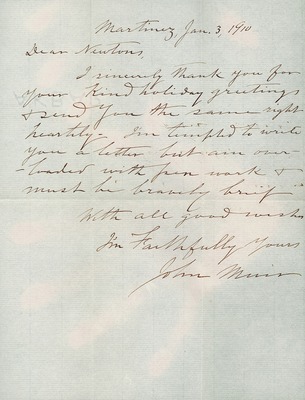 Martinez, Jan. 3, 1910
Dear Newtons,
I sincerely thank you for
your kind holiday greetings
& send you the same right
heartily. I'm tempted to write
you a letter but am over-
-loaded with pen work &
must be bravely brief
With all good wishes
I'm Faithfully Yours
John Muir